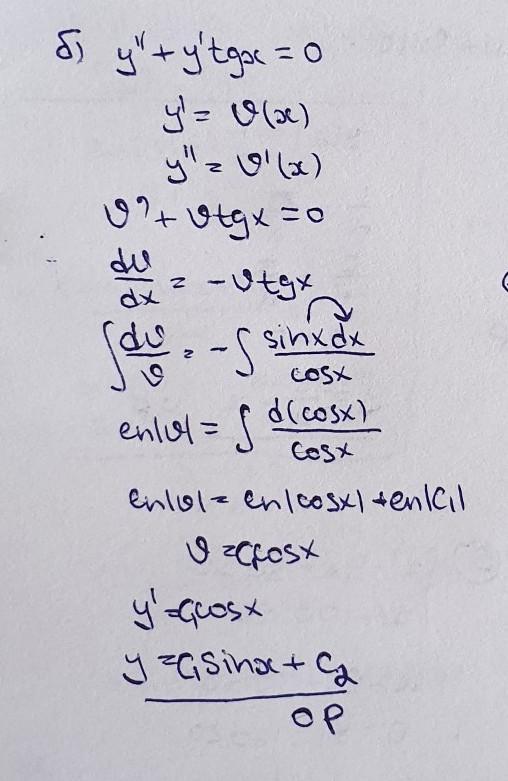 б) y'' + y'tgx = 0
y' = υ(x)
y'' = υ'(x)
υ' + υtgx = 0
dυ/dx = -υtgx
∫ dυ/υ = -∫ sinxdx/cosx
ln|υ| = ∫ d(cosx)/cosx
ln|υ| = ln|cosx| + ln|C₁|
υ = C₁cosx
y' = C₁cosx
y = C₁sinx + C₂
OP